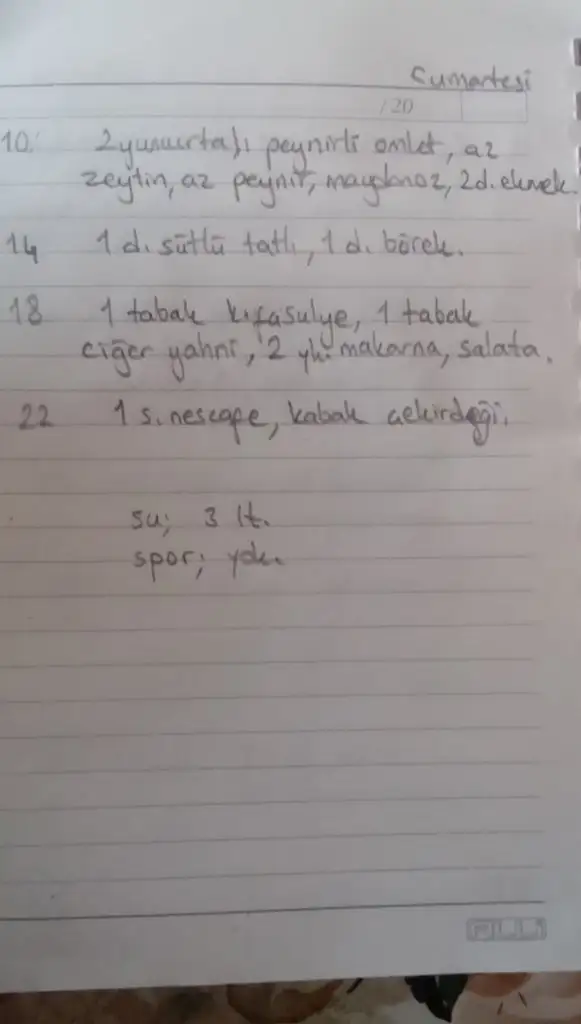 Cumartesi
/ 20
10. 2 yumurtalı peynirli omlet, az
zeytin, az peynir, maydanoz, 2 d. ekmek.
14 1 d. sütlü tatlı, 1 d. börek.
18 1 tabak k.fasulye, 1 tabak
ciğer yahni, 2 yk. makarna, salata.
22 1 s. nescafe, kabak çekirdeği.
su; 3 lt.
spor; yok.